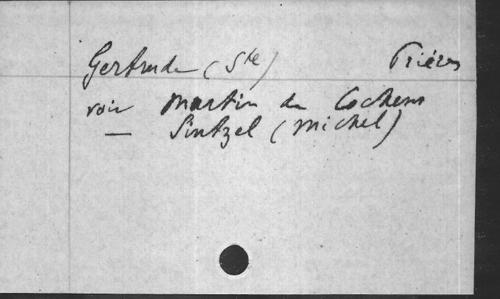 Gertrude (Ste) Prières
voir Martin de Cochem
— Sintzel (Michel)